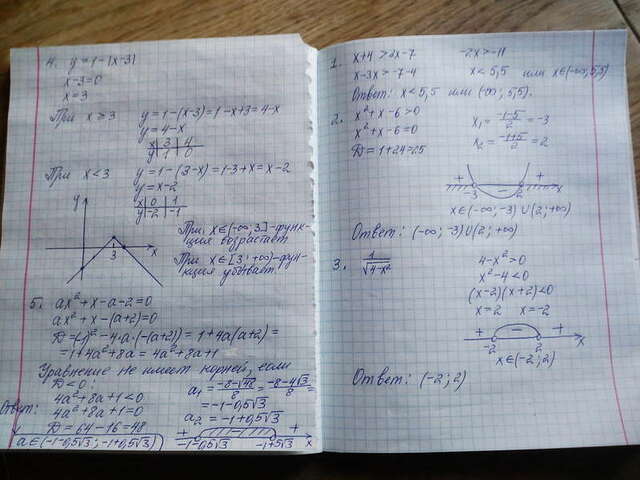 4. y = 1-|x-3|
x-3=0
x=3
При x ≥ 3 y=1-(x-3)=1-x+3=4-x
y=4-x
x 3 4
y 1 0
При x<3 y=1-(3-x)=1-3+x=x-2
y=x-2
x 0 1
y -2 -1
y
x
3
При x∈(-∞;3]-функ-
ция возрастает
При x∈[3;+∞)-фун-
кция убывает.
5. ax²+x-a-2=0
ax²+x-(a+2)=0
D=(1)²-4·a·(-(a+2))=1+4a(a+2)=
=1+4a²+8a=4a²+8a+1
Уравнение не имеет корней, если
D<0:
4a²+8a+1<0
4a²+8a+1=0
D=64-16=48
Ответ:
a∈(-1-0,5√3; -1+0,5√3)
a₁=(-8-√48)/8=(-8-4√3)/8=
=-1-0,5√3
a₂=-1+0,5√3
+ - +
-1-0,5√3 -1+0,5√3 x
1. x+4>3x-7 -2x>-11
x-3x>-7-4 x<5,5 или x∈(-∞;5,5)
Ответ: x<5,5 или (∞; 5,5).
2. x²+x-6>0
x²+x-6=0
D=1+24=25
x₁=(-1-5)/2=-3
x₂=(-1+5)/2=2
+ - +
-3 2 x
x∈(-∞;-3)∪(2;+∞)
Ответ: (-∞;-3)∪(2;+∞)
3. 1/√(4-x²)
4-x²>0
x²-4<0
(x-2)(x+2)<0
x=2 x=-2
+ - +
-2 2 x
x∈(-2;2)
Ответ: (-2;2)